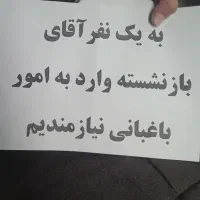 به یک نفرآقای
بازنشسته وارد به امور
باغبانی نیازمندیم